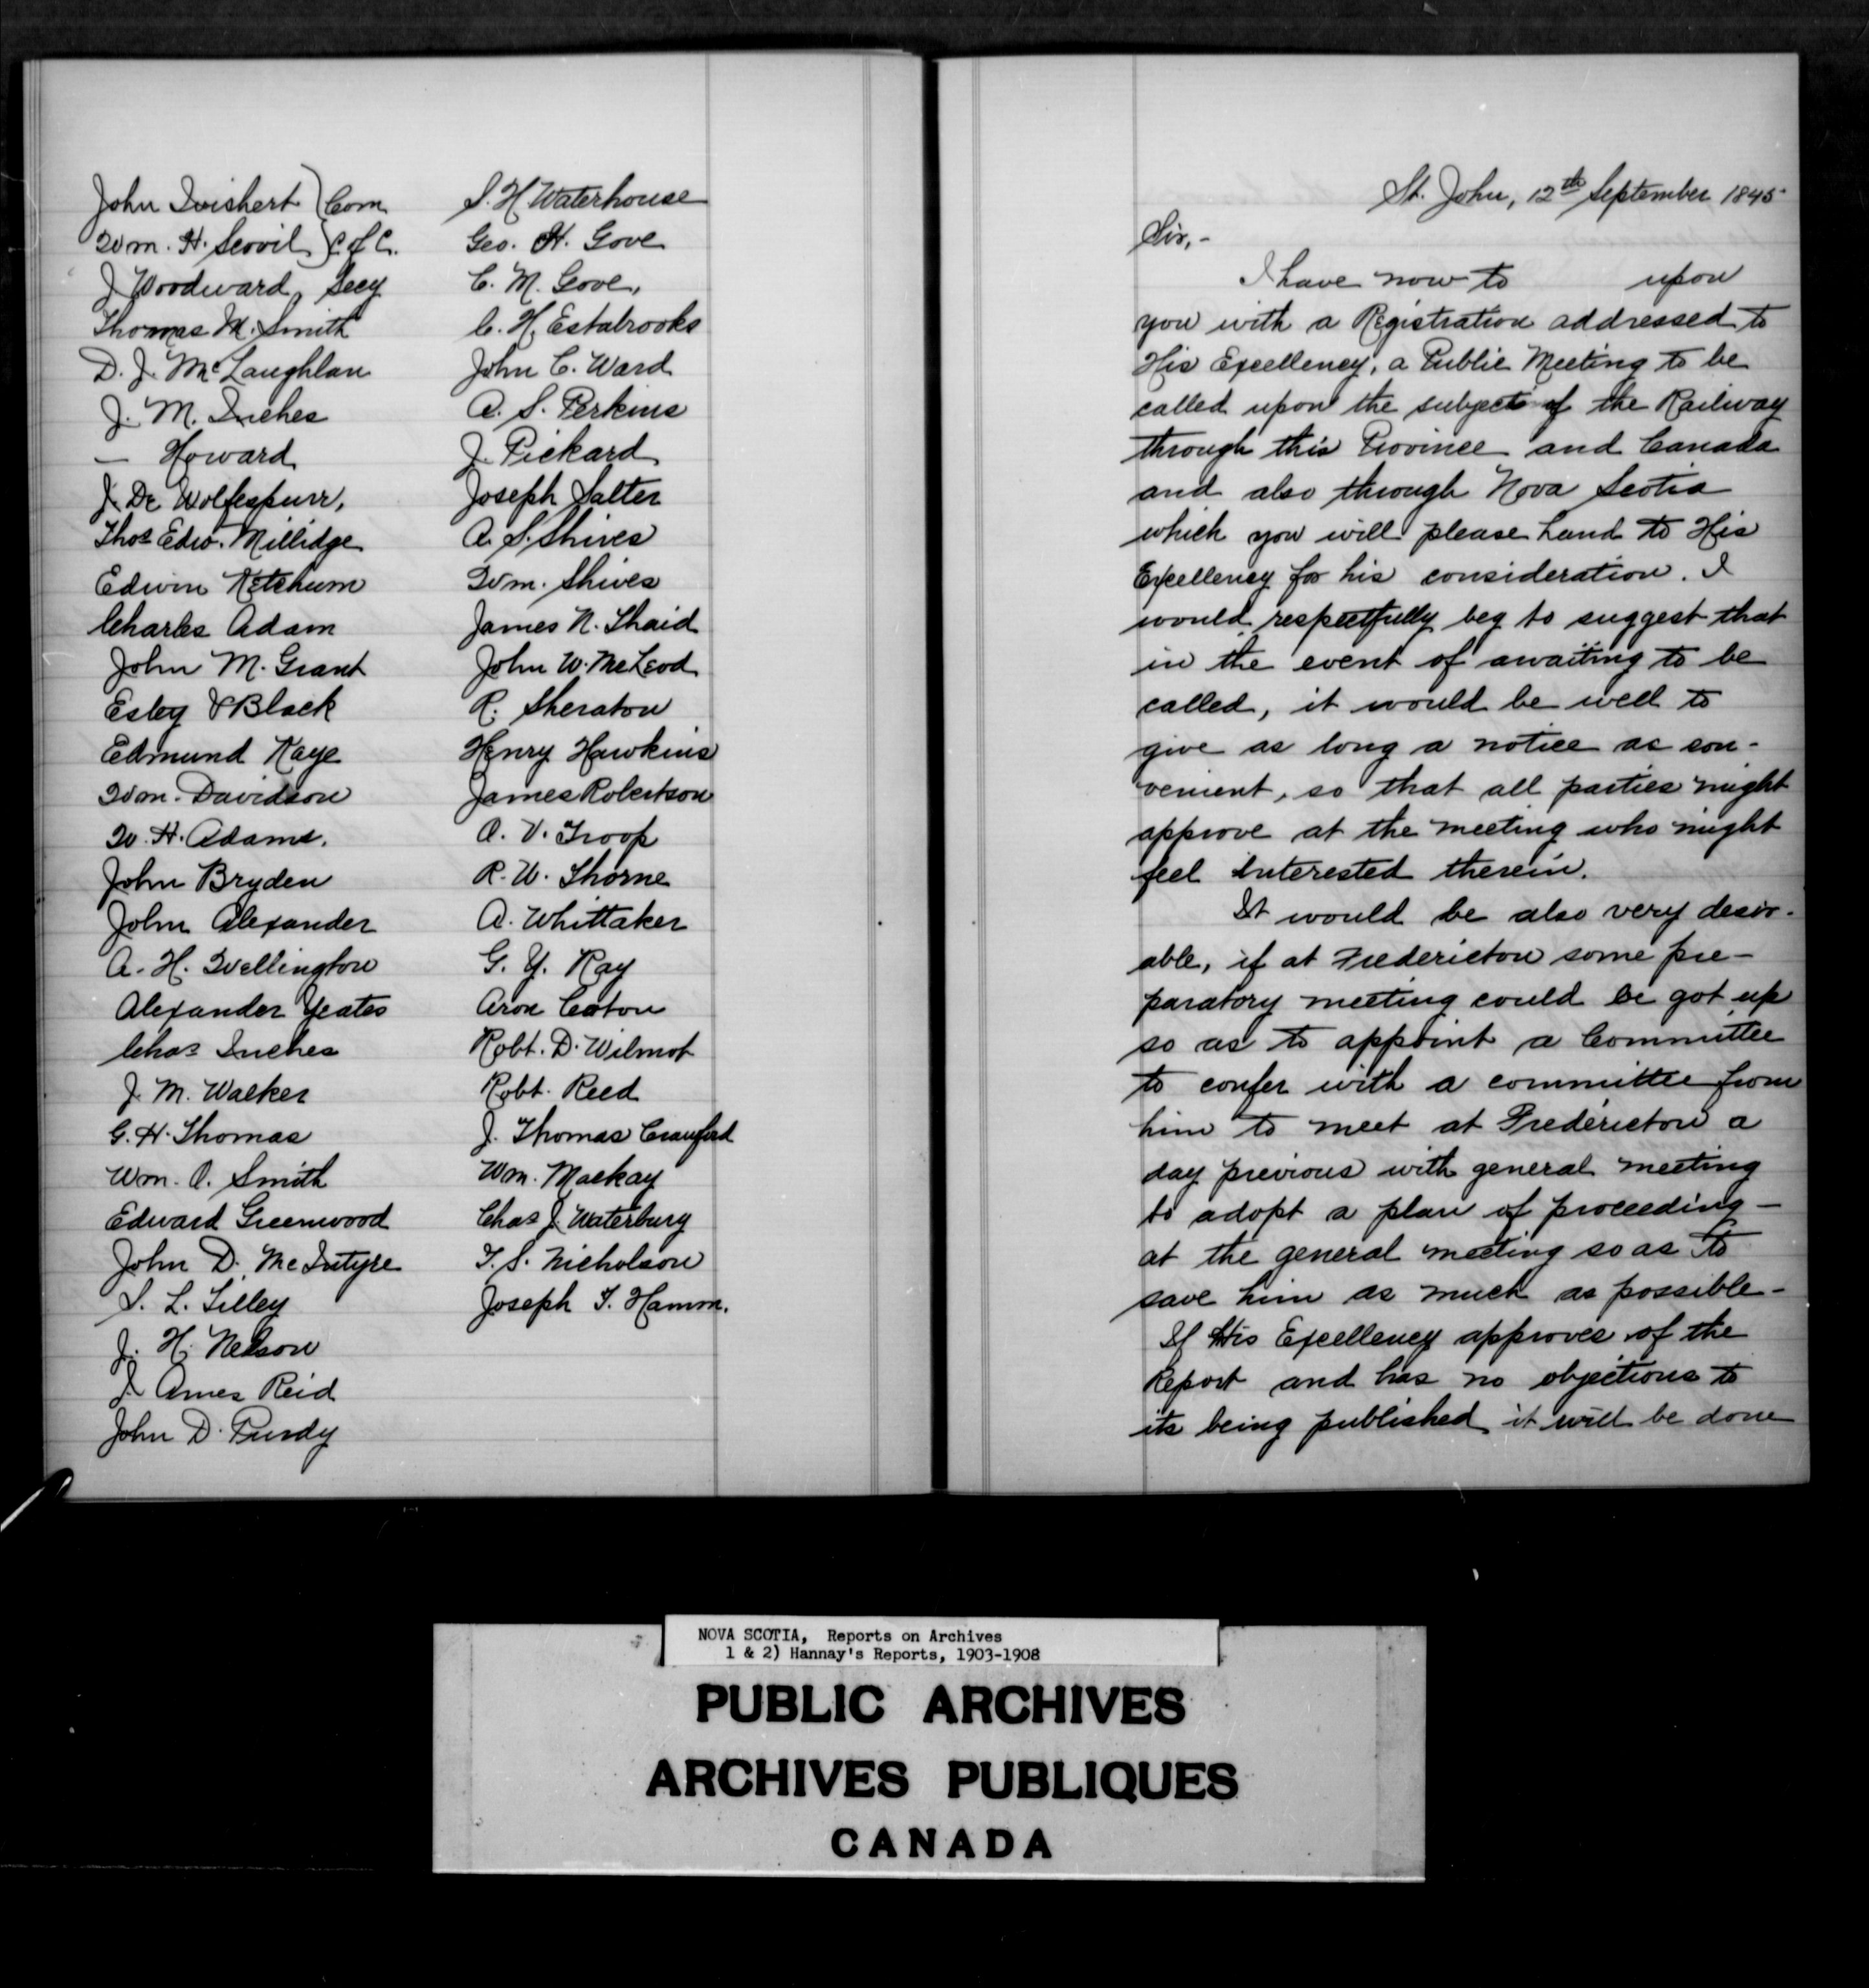 John Wishert } Com
Wm. H. Scovil } C. of C.
J Woodward, Secy
Thomas M. Smith
D. J. McLaughlan
J. M. Inches
— Howard
J. De Wolfespurr,
Thos Edw. Millidge
Edwin Ketchum
Charles Adam
John M. Grant
Esley & Black
Edmund Kaye
Wm. Davidson
W. H. Adams.
John Bryden
John Alexander
A. H. Wellington
Alexander Yeates
Chas Inches
J. M. Walker
G. H. Thomas
Wm. O. Smith
Edward Greenwood
John D. McIntyre
S. L. Tilley
J. H. Nelson
J. Ames Reid
John D. Purdy
S. H Waterhouse
Geo. H. Gove
C. M. Gove,
C. H. Estabrooks
John C. Ward
A. S. Perkins
J. Pickard
Joseph Salter
A. S. Shives
Wm. Shives
James N. Thaid
John W. McLeod
R. Sheraton
Henry Hawkins
James Robertson
A. V. Troop
R. W. Thorne
A. Whittaker
G. Y. Ray
Aron Eaton
Robt. D. Wilmot
Robt. Reed
J. Thomas Crauford
Wm. Mackay
Chas J. Waterbury
T. S. Nicholson
Joseph T. Hamm.
St. John, 12th September 1845
Sir,-
I have now to upon
you with a Registration addressed to
His Excellency, a Public Meeting to be
called upon the subject of the Railway
through this Province and Canada
and also through Nova Scotia
which you will please hand to His
Excellency for his consideration. I
would respectfully beg to suggest that
in the event of awaiting to be
called, it would be well to
give as long a notice as con-
venient, so that all parties might
approve at the meeting who might
feel interested therein.
It would be also very desir-
able, if at Fredericton some pre-
paratory meeting could be got up
so as to appoint a Committee
to confer with a committee from
him to meet at Fredericton a
day previous with general meeting
to adopt a plan of proceeding -
at the general meeting so as to
save him as much as possible -
If His Excellency approves of the
Report and has no objections to
its being published it will be done
NOVA SCOTIA, Reports on Archives
1 & 2) Hannay's Reports, 1903-1908
PUBLIC ARCHIVES
ARCHIVES PUBLIQUES
CANADA